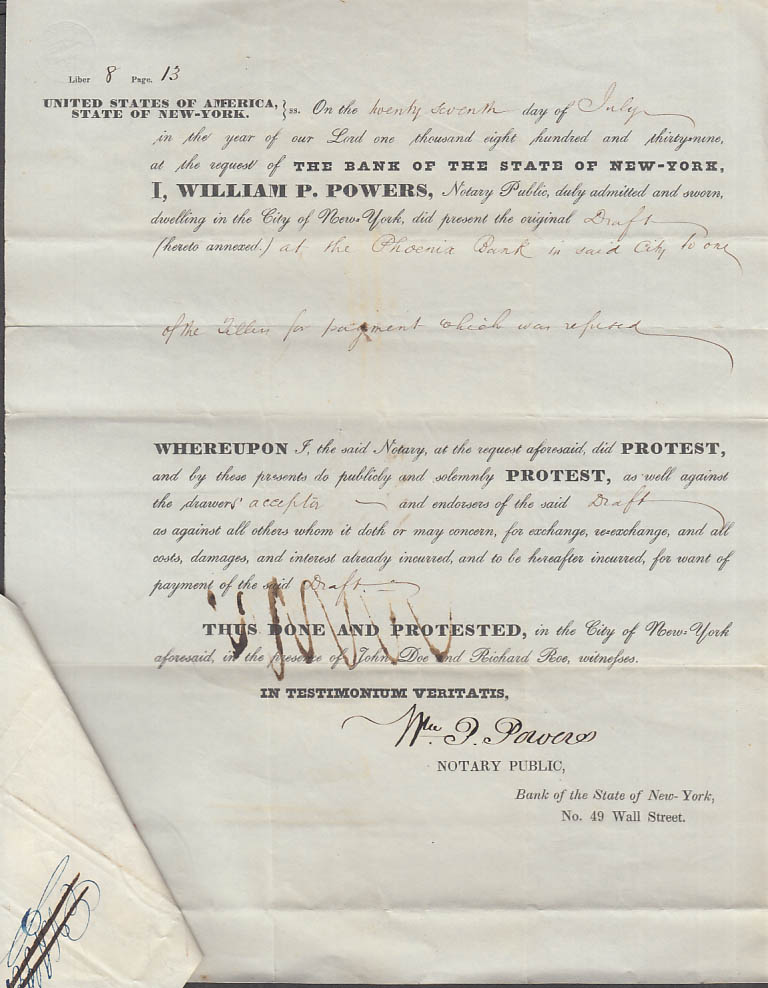 Liber 8 Page. 13
UNITED STATES OF AMERICA,
STATE OF NEW-YORK. } ss. On the twenty seventh day of July
in the year of our Lord one thousand eight hundred and thirty-nine,
at the request of THE BANK OF THE STATE OF NEW-YORK,
I, WILLIAM P. POWERS, Notary Public, duly admitted and sworn,
dwelling in the City of New-York, did present the original Draft
(hereto annexed.) at the Phoenix Bank in said City to one
of the Tellers for payment which was refused
WHEREUPON I, the said Notary, at the request aforesaid, did PROTEST,
and by these presents do publicly and solemnly PROTEST, as well against
the drawers acceptor and endorsers of the said Draft
as against all others whom it doth or may concern, for exchange, re-exchange, and all
costs, damages, and interest already incurred, and to be hereafter incurred, for want of
payment of the said Draft.
THUS DONE AND PROTESTED, in the City of New-York
aforesaid, in the presence of John Doe and Richard Roe, witnesses.
IN TESTIMONIUM VERITATIS,
Wm. P. Powers
NOTARY PUBLIC,
Bank of the State of New-York,
No. 49 Wall Street.